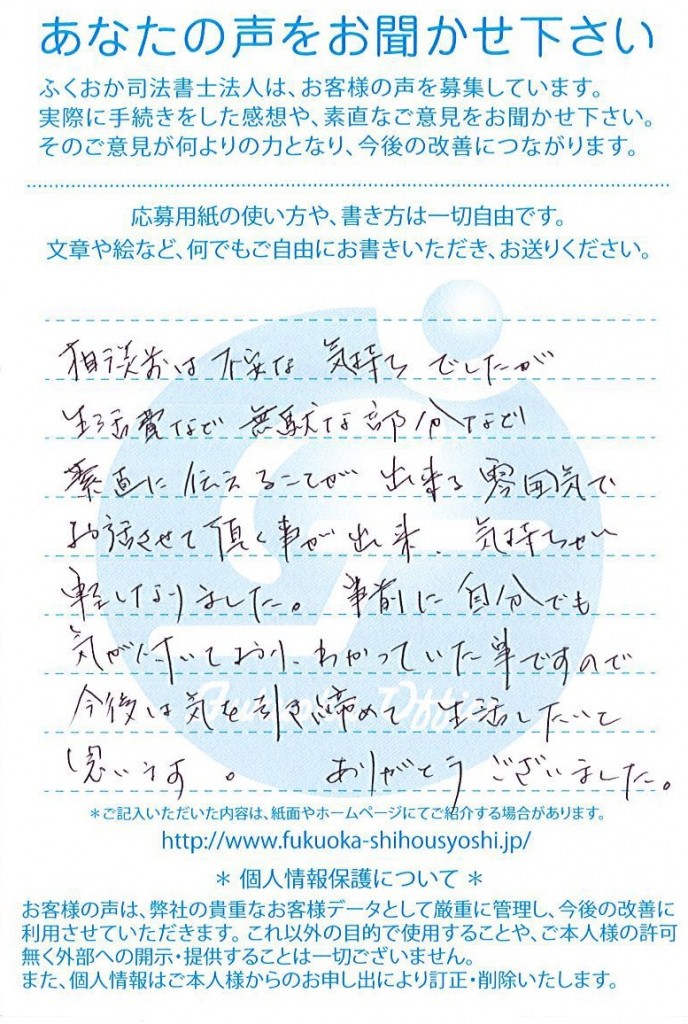 あなたの声をお聞かせ下さい
ふくおか司法書士法人は、お客様の声を募集しています。
実際に手続きをした感想や、素直なご意見をお聞かせ下さい。
そのご意見が何よりの力となり、今後の改善につながります。
応募用紙の使い方や、書き方は一切自由です。
文章や絵など、何でもご自由にお書きいただき、お送りください。
相談前は不安な気持ちでしたが
生活費など無駄な部分など
素直に伝えることが出来る雰囲気で
お話させて頂く事が出来、気持ちが
軽くなりました。事前に自分でも
気が付いており、わかっていた事ですので
今後は気を引き締めて生活したいと
思います。ありがとうございました。
＊ご記入いただいた内容は、紙面やホームページにてご紹介する場合があります。
http://www.fukuoka-shihousyoshi.jp/
＊ 個人情報保護について ＊
お客様の声は、弊社の貴重なお客様データとして厳重に管理し、今後の改善に
利用させていただきます。これ以外の目的で使用することや、ご本人様の許可
無く外部への開示・提供することは一切ございません。
また、個人情報はご本人様からのお申し出により訂正・削除いたします。